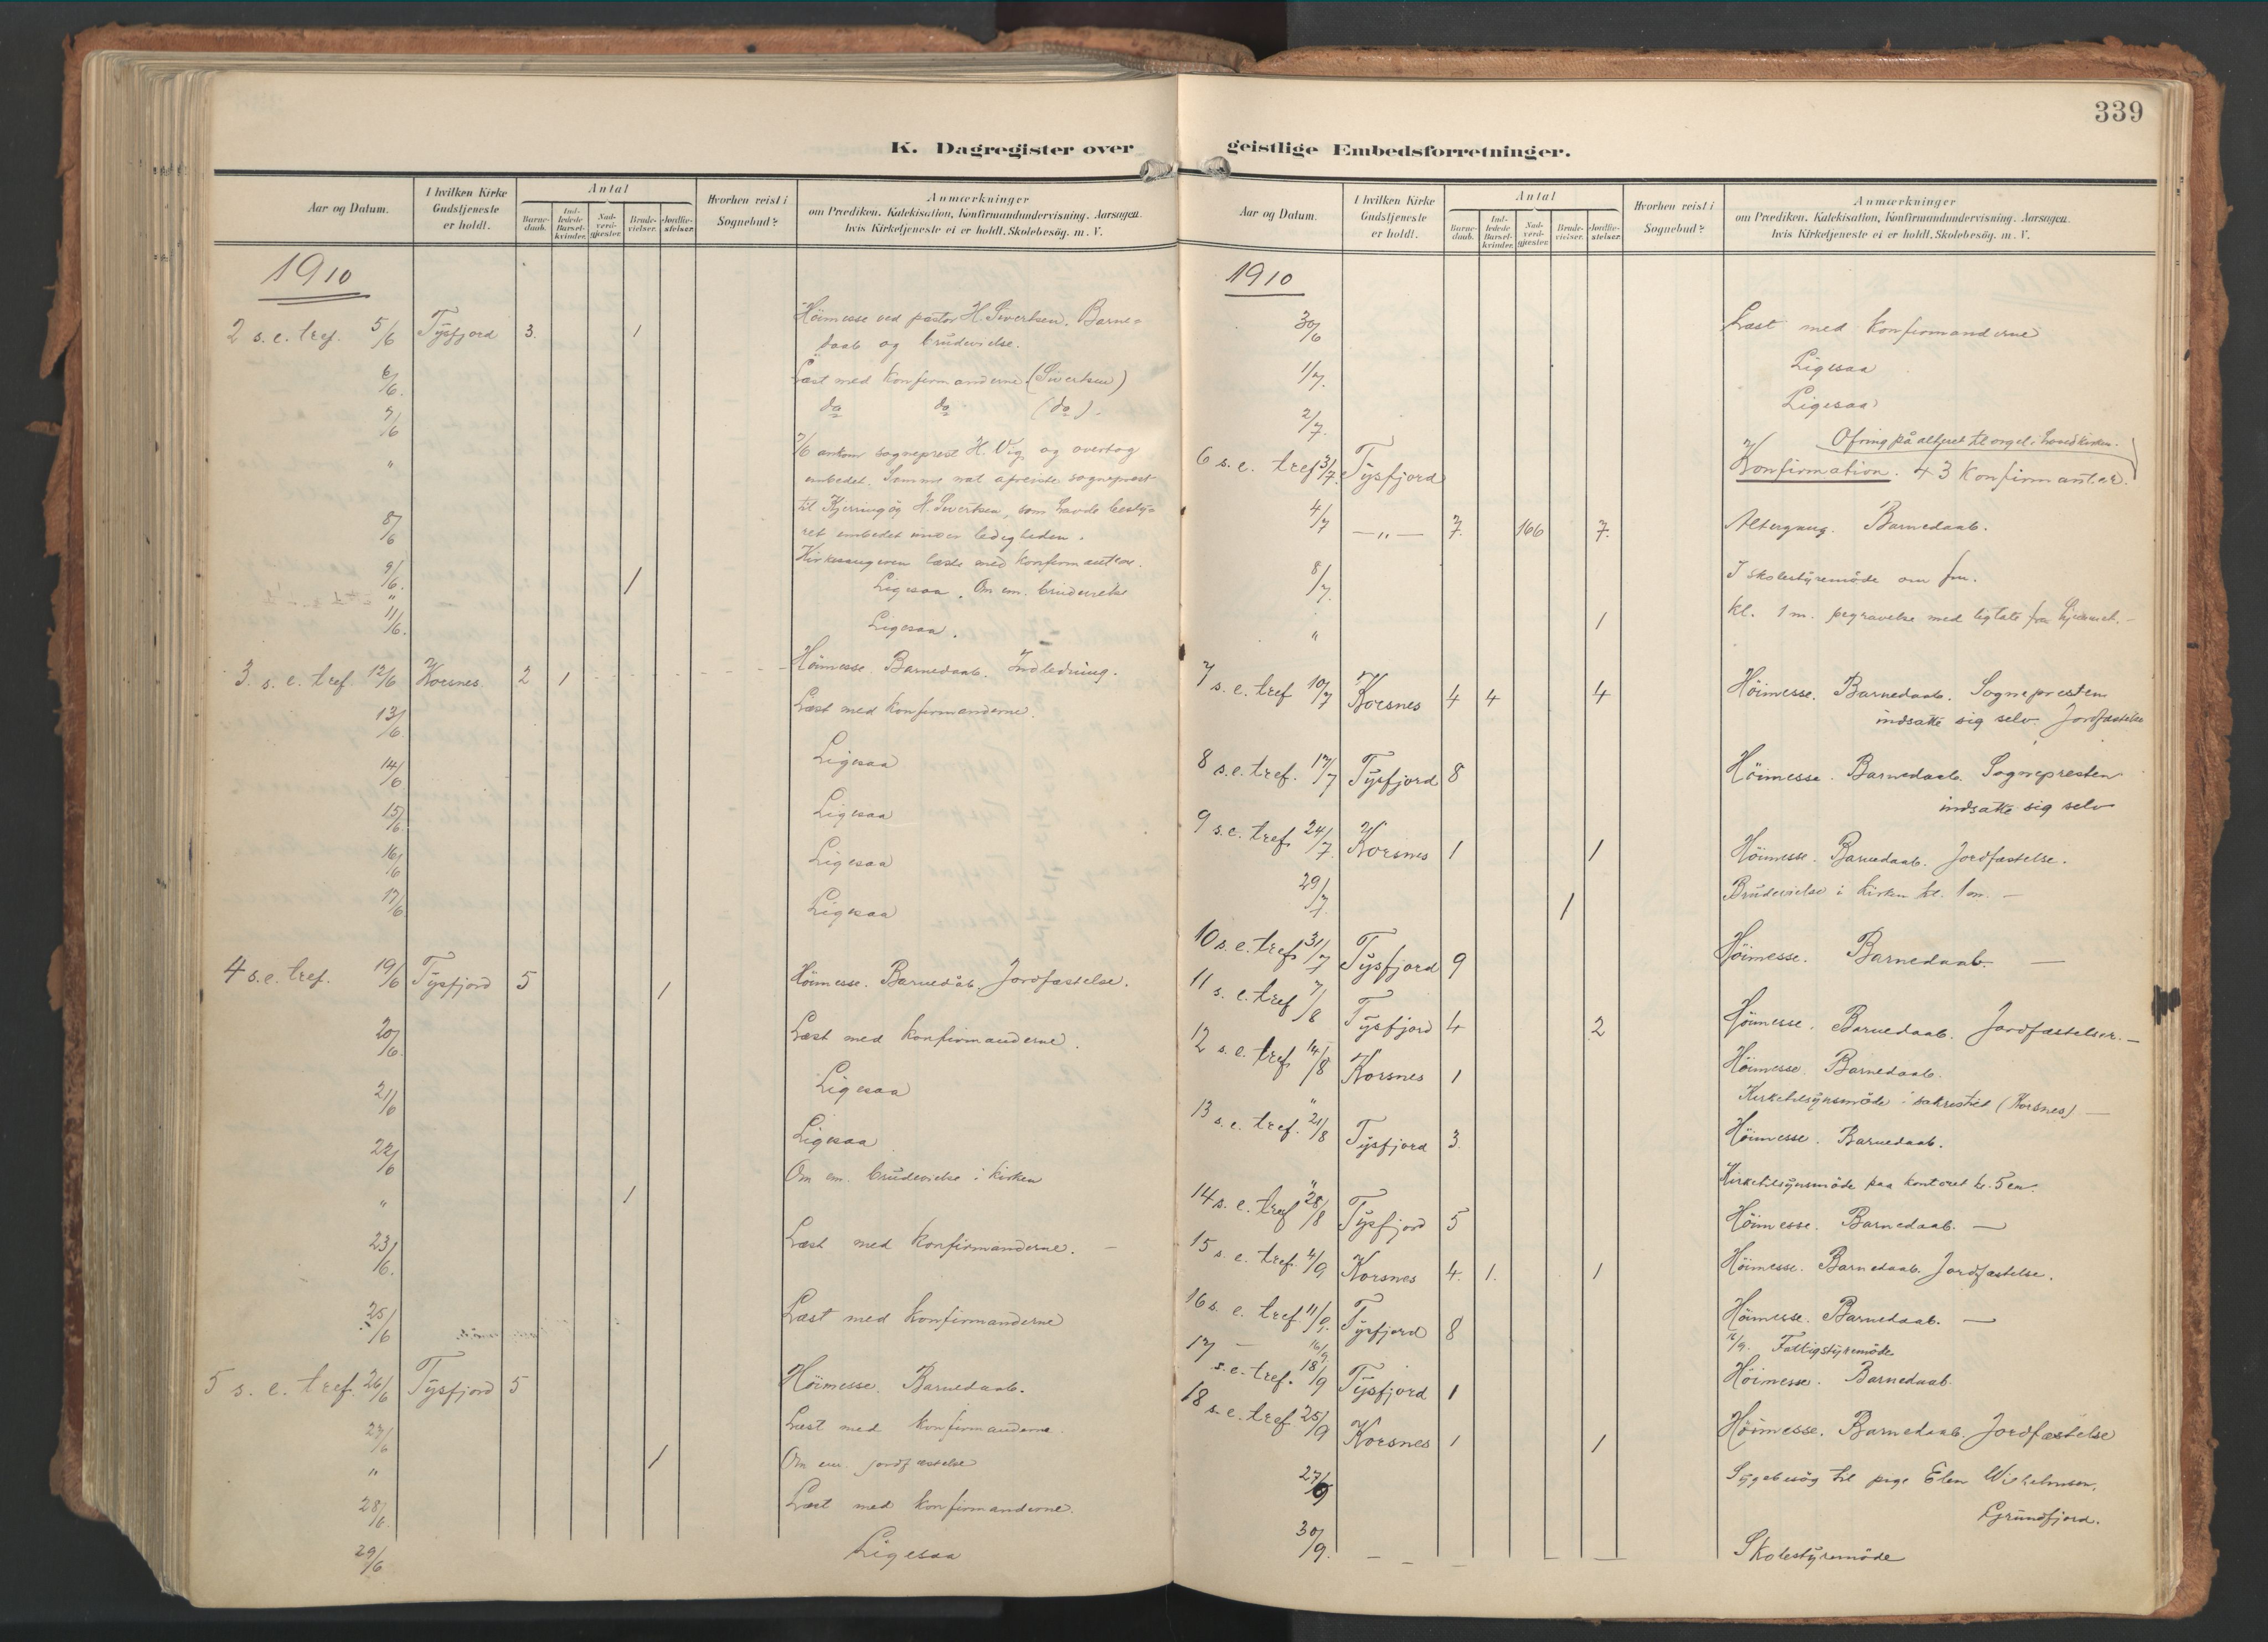 339
K. Dagregister over geistlige Embedsforretninger.
Aar og Datum. | I hvilken Kirke Gudstjeneste er holdt. | Antal | Barnedaab. | Indledede Barselkvinder. | Nadverdgjæster. | Brudevielser. | Jordfæstelser. | Hvorhen reist i Sognebud? | Anmærkninger om Prædiken, Katekisation, Konfirmandundervisning, Aarsagen, hvis Kirketjeneste ei er holdt, Skolebesøg, m. V.
1910
2 s. e. tref. 5/6 Tysfjord 3. 1 Höimesse ved pastor H. Sivertsen. Barne-
daab og brudevielse.
6/6. Læst med konfirmanderne (Sivertsen)
7/6 do do (do).
" 7/6 ankom sogneprest H. Vig og overtog
embedet. Samme nat afreiste sogneprest
til Kjerringøy H. Sivertsen, som havde besty-
8/6 ret embedet under ledigheden.
Kirkesangeren læste med konfirmanterne.
9/6. " 1 Ligesaa. Om em. brudevielse
11/6. Ligesaa.
3. s. e. tref. 12/6 Korsnes. 2 1 Höimesse. Barnedaab. Indledning.
13/6 Læst med konfirmanderne.
14/6 Ligesaa
15/6. Ligesaa
16/6 Ligesaa
17/6 Ligesaa
4 s. e. tref. 19/6 Tysfjord 5 1 Höimesse. Barnedåb. Jordfæstelse.
20/6. Læst med konfirmanderne.
21/6 Ligesaa
22/6 Ligesaa
" 1 Om em. brudevielse i kirken
23/6. Læst med konfirmanderne. —
25/6 Læst med konfirmanderne
5 s. e. tref. 26/6 Tysfjord 5 Höimesse. Barnedaab.
27/6 Læst med konfirmanderne.
" 1 Om em. jordfæstelse
28/6. Læst med konfirmanderne.
29/6 Ligesaa
Aar og Datum. | I hvilken Kirke Gudstjeneste er holdt. | Antal | Barnedaab. | Indledede Barselkvinder. | Nadverdgjæster. | Brudevielser. | Jordfæstelser. | Hvorhen reist i Sognebud? | Anmærkninger om Prædiken, Katekisation, Konfirmandundervisning, Aarsagen, hvis Kirketjeneste ei er holdt, Skolebesøg, m. V.
1910
30/6 Læst med konfirmanderne
1/7. Ligesaa
2/7. Ligesaa
Ofring på alteret til orgel i hovedkirken.
6 s. e. tref 3/7. Tysfjord Konfirmation. 43 konfirmanter.
4/7 —"— 7. 166 7. Altergang. Barnedaab.
8/7. I skolestyremöde om fm.
" 1 kl. 1 m. begravelse med ligtale fra hjemmet. —
7 s. e. tref 10/7 Korsnes 4 4 4 Höimesse. Barnedaab. Sognepresten
indsatte sig selv. Jordfæstelse
8 s. e. tref. 17/7 Tysfjord 8 Höimesse. Barnedaab. Sognepresten
indsatte sig selv
9 s. e. tref. 24/7. Korsnes 1 1 Höimesse. Barnedaab. Jordfæstelse.
29/7. 1 Brudevielse i kirken kl. 1 m. —
10 s. e. tref. 31/7 Tysfjord 9 Höimesse. Barnedaab. —
11 s. e. tref 7/8 Tysfjord 4 2 Höimesse. Barnedaab. Jordfæstelser. —
12 s. e. tref 14/8 Korsnes 1 Höimesse. Barnedaab.
" Kirketilsynsmöde i sakristiet (Korsnes) —
13 s. e. tref. 21/8 Tysfjord 3. Höimesse. Barnedaab.
" Kirketilsynsmöde paa kontoret kl. 5 em.
14 s. e. tref 28/8 Tysfjord 5 Höimesse. Barnedaab. —
15 s. e. tref. 4/9 Korsnes 4. 1. 1 Höimesse. Barnedaab. Jordfæstelse.
16 s. e. tref. 11/9. Tysfjord 8 Höimesse. Barnedaab. —
— 16/9. 16/9. Fattigstyremöde
17 s. e. tref. 18/9 Tysfjord 1 Höimesse. Barnedaab.
18 s. e. tref 25/9 Korsnes 1 1 Höimesse. Barnedaab. Jordfæstelse
27/9 Sygebesög til pige Elen Wilhelmsen,
Grundfjord.
30/9. Skolestyremöde